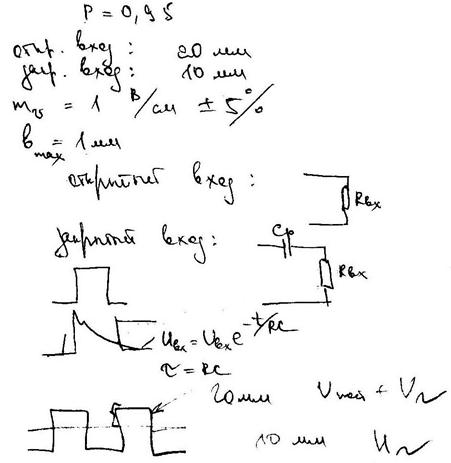 P = 0,95
откр. вход: 20 мм
закр. вход: 10 мм
m = 1 В/см ± 5%
b max = 1 мм
открытый вход:
Rвх
закрытый вход:
Cр
Rвх
Uвх = Uвх e^-t/RC
τ = RC
20 мм U + U~
10 мм U~